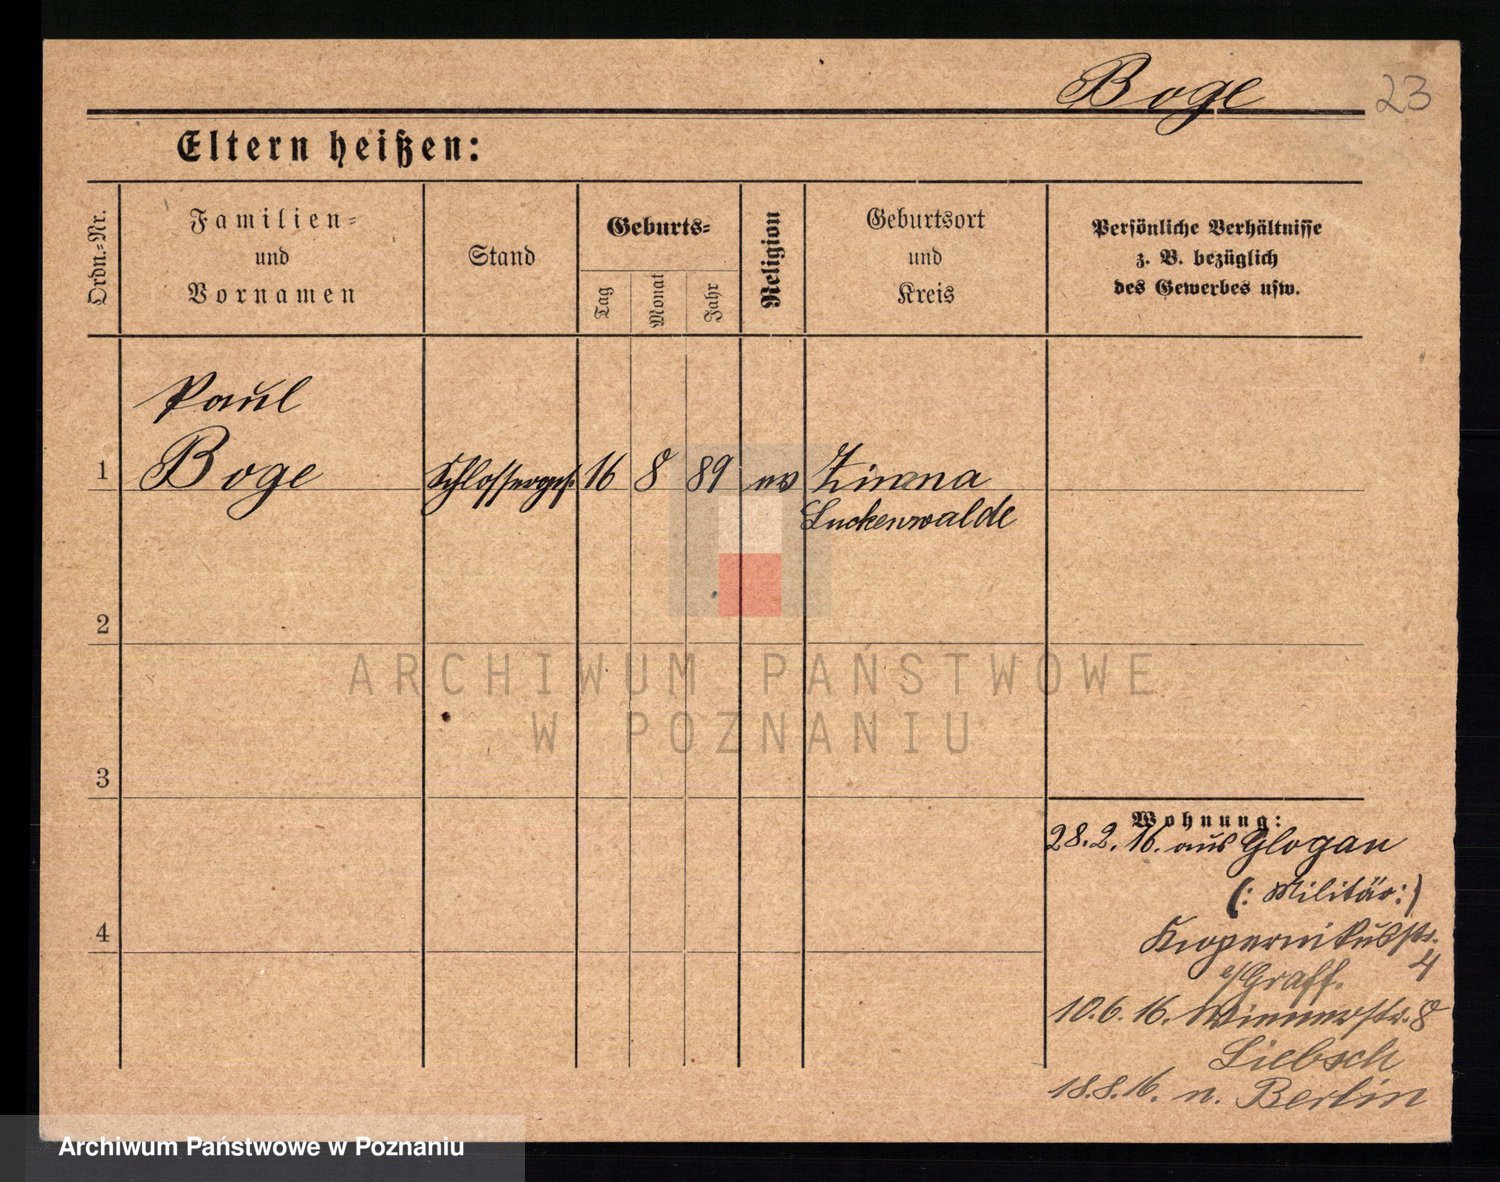 Boge 23
Eltern heißen:
Ordn.=Nr.
Familien=
und
Vornamen
Stand
Geburts=
Tag
Monat
Jahr
Religion
Geburtsort
und
Kreis
Persönliche Verhältnisse
z. B. bezüglich
des Gewerbes usw.
Paul
1 Boge Schlosserges. 16 8 89 ev Zinna
Luckenwalde
2
3
4
Wohnung:
28.2.16. aus Glogau
(: Militär :)
Kopernikusstr.
4
b/Graff.
10.6.16. Wienerstr. 8
Liebsch
18.8.16. n. Berlin
ARCHIWUM PAŃSTWOWE
W POZNANIU
Archiwum Państwowe w Poznaniu